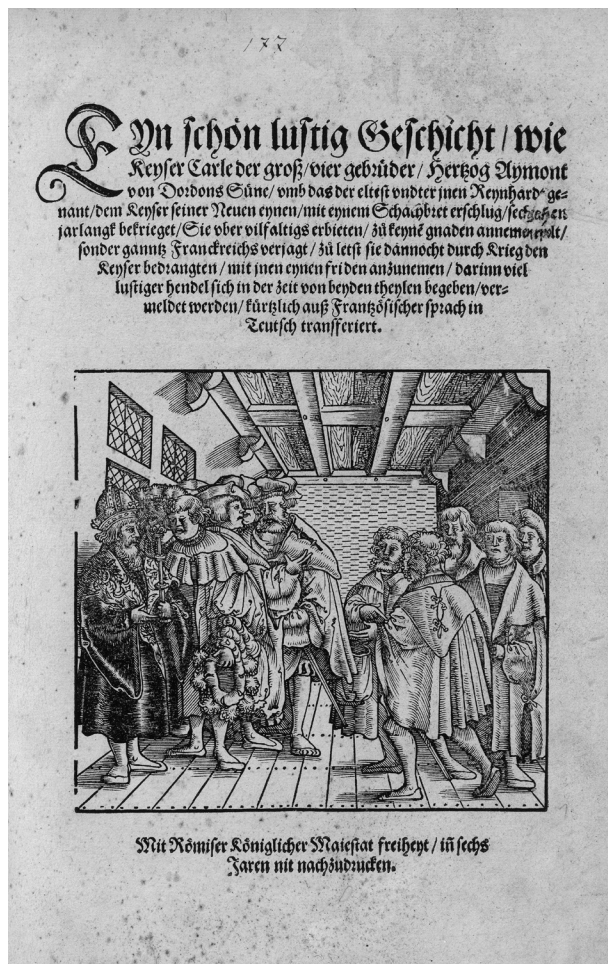 177
Eyn schön lustig Geschicht / wie
Keyser Carle der groß / vier gebrüder / Hertzog Aymont
von Dordons Süne / vmb das der eltest vndter jnen Reynhard ge-
nant / dem Keyser seiner Neuen eynen / mit eynem Schachbret erschlug / sechzehen
jar langk bekrieget / Sie vber vilfaltigs erbieten / zů keynē gnaden annemen wolt /
sonder ganntz Franckreichs verjagt / zů letst sie dannocht durch Krieg den
Keyser bedrangten / mit jnen eynen friden anzunemen / darinn viel
lustiger hendel sich in der zeit von beyden theylen begeben / ver-
meldet werden / kürtzlich auß Frantzösischer sprach in
Teutsch transferiert.
Mit Römiser Königlicher Maiestat freiheyt / iñ sechs
Jaren nit nachzudrucken.